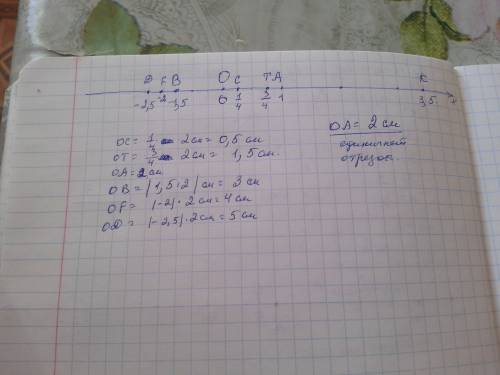 D F B O C T A K
-2,5 -2 -1,5 0 1/4 3/4 1 3,5 x
OC = 1/4 · 2см = 0,5 см
OT = 3/4 · 2см = 1,5 см.
OA = 2см
OB = |1,5·2| см = 3 см
OF = |-2|·2см = 4см
OD = |-2,5|·2см = 5см
OA = 2см
единичный
отрезок.